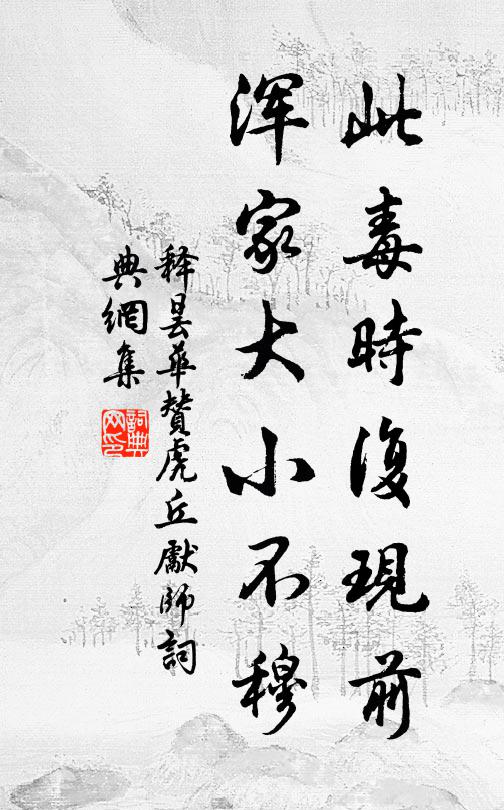 此毒時復現前
渾家大小不穆
釋曇華贊虎丘獻師詞
典網集
詞典
网印